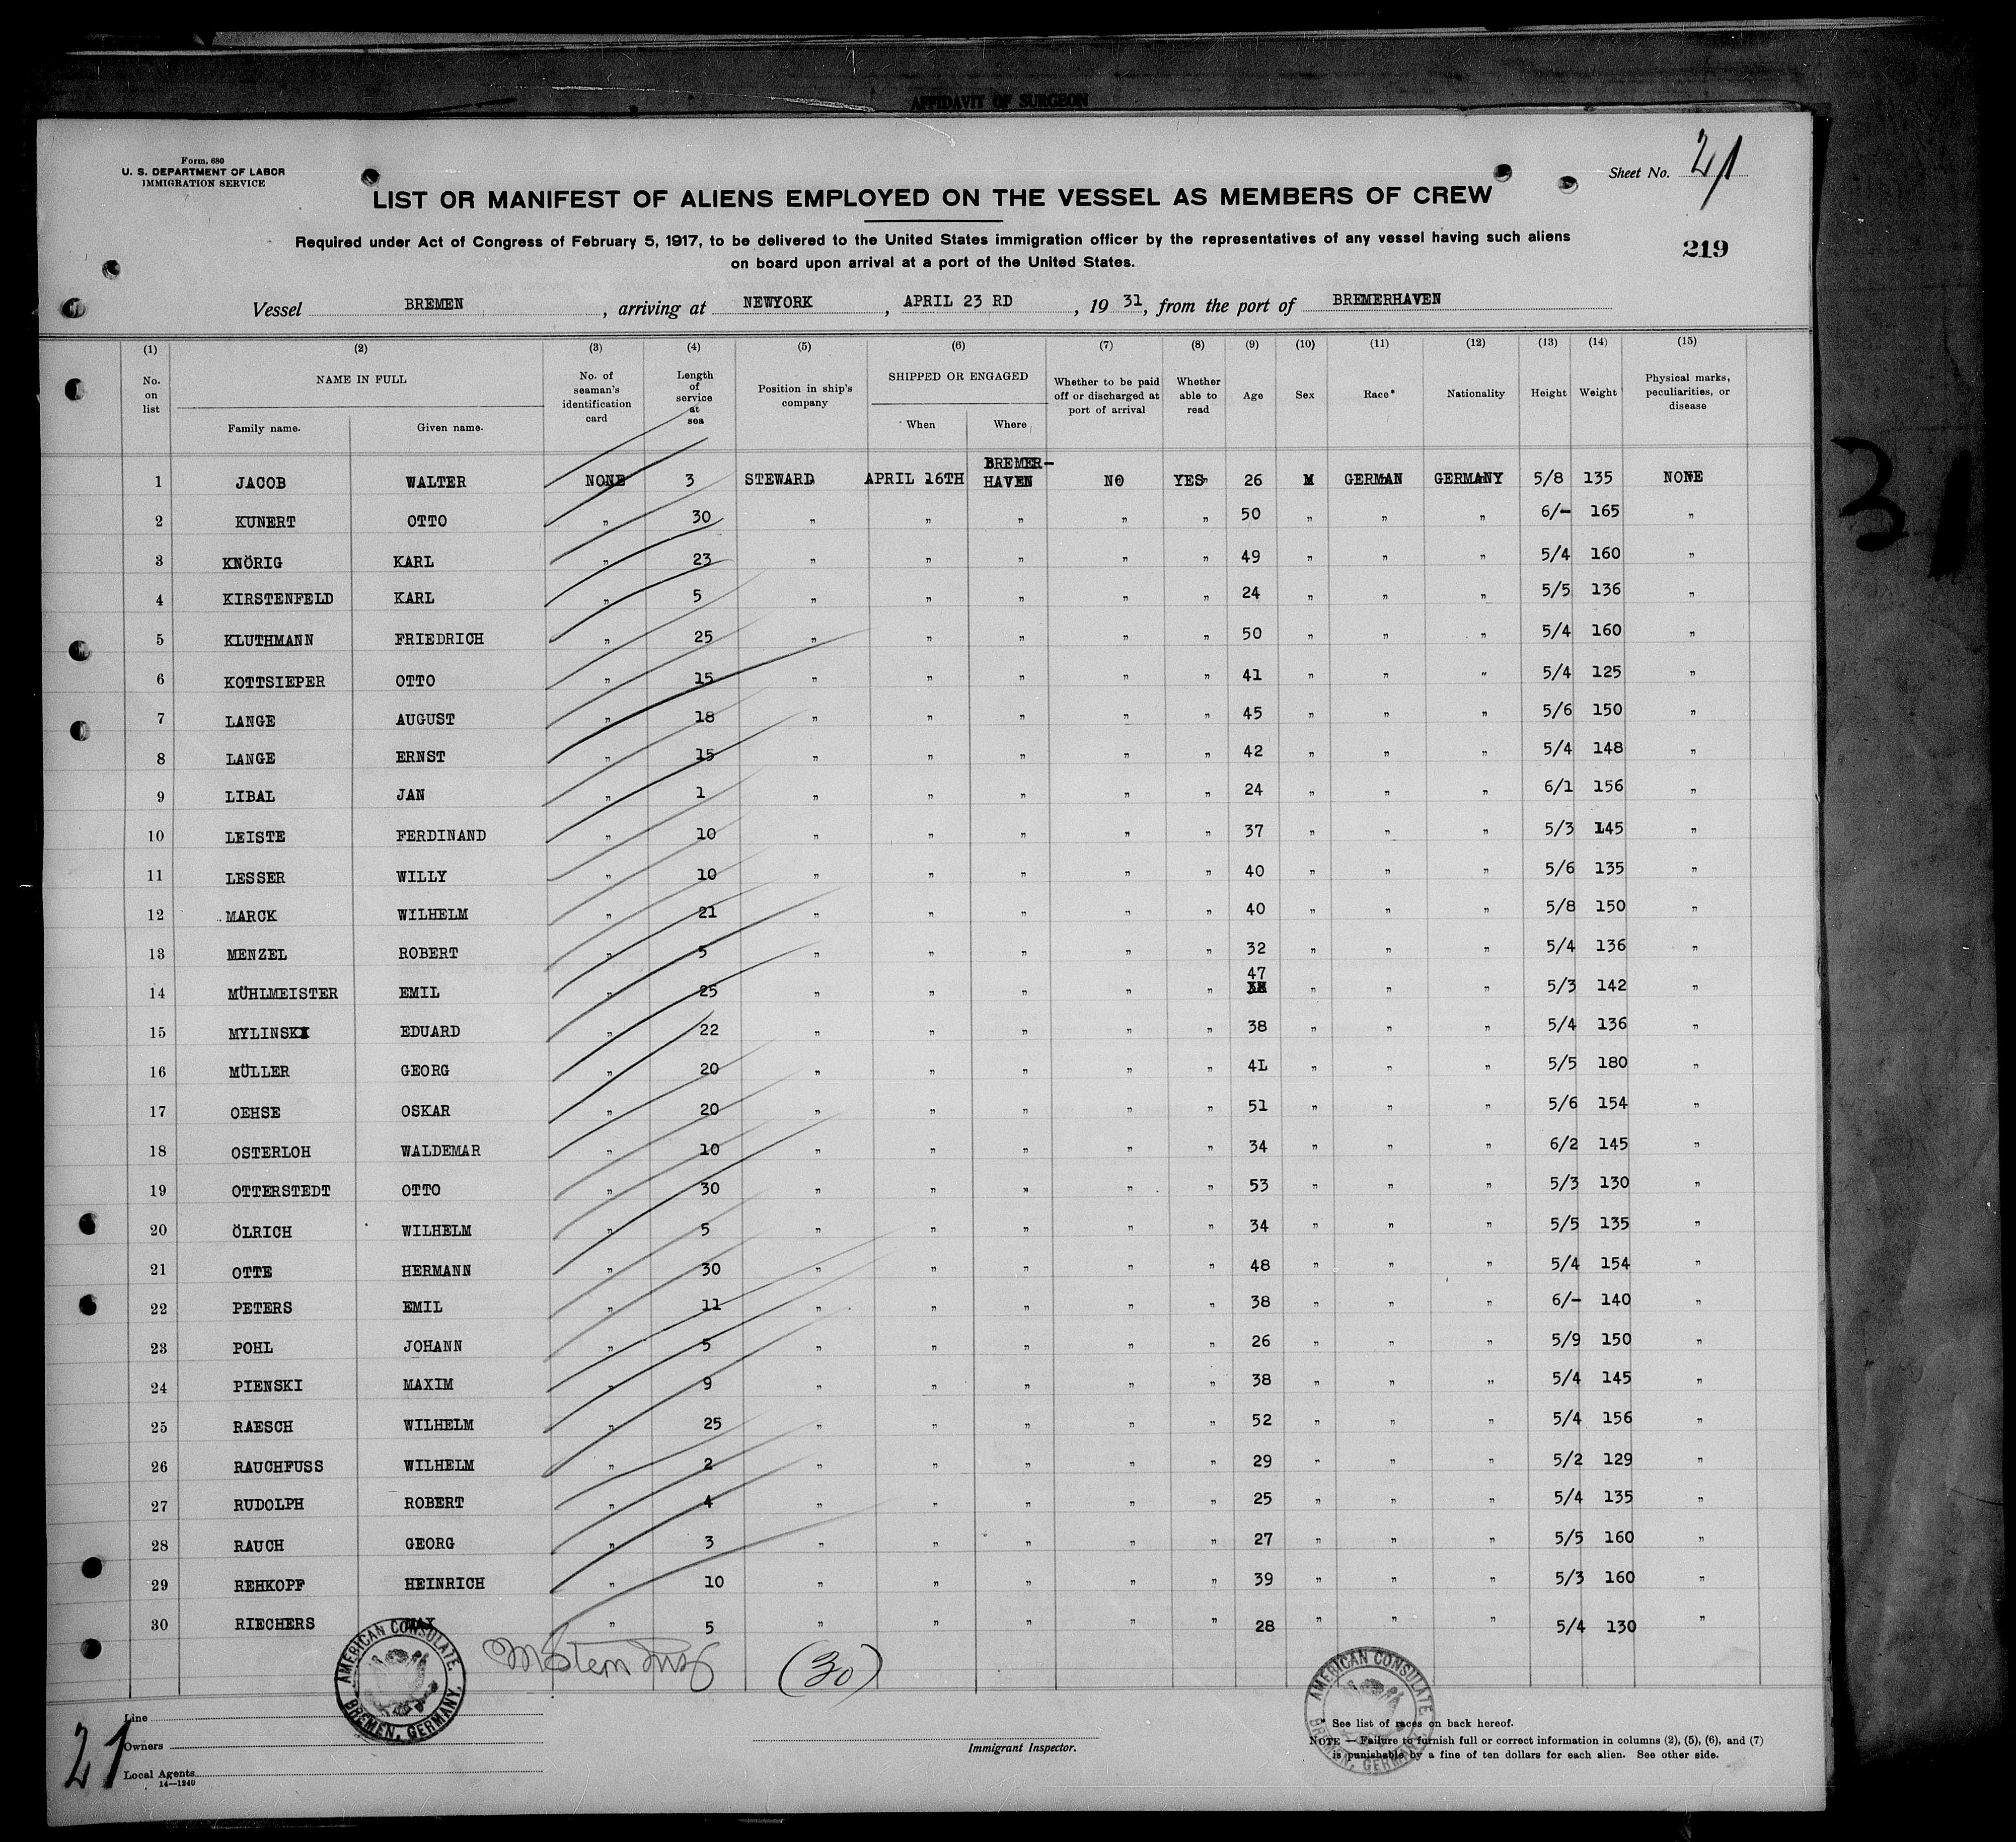 AFFIDAVIT OF SURGEON
Form. 680
U. S. DEPARTMENT OF LABOR
IMMIGRATION SERVICE
Sheet No. 21
LIST OR MANIFEST OF ALIENS EMPLOYED ON THE VESSEL AS MEMBERS OF CREW
Required under Act of Congress of February 5, 1917, to be delivered to the United States immigration officer by the representatives of any vessel having such aliens
on board upon arrival at a port of the United States.
219
Vessel BREMEN, arriving at NEWYORK, APRIL 23 RD, 19 31, from the port of BREMERHAVEN
(1) (2) (3) (4) (5) (6) (7) (8) (9) (10) (11) (12) (13) (14) (15)
No. on list NAME IN FULL Family name. Given name. No. of seaman's identification card Length of service at sea Position in ship's company SHIPPED OR ENGAGED When Where Whether to be paid off or discharged at port of arrival Whether able to read Age Sex Race* Nationality Height Weight Physical marks, peculiarities, or disease
1 JACOB WALTER NONE 3 STEWARD APRIL 16TH BREMER-HAVEN NO YES 26 M GERMAN GERMANY 5/8 135 NONE
2 KUNERT OTTO " 30 " " " " " 50 " " " 6/- 165 "
3 KNÖRIG KARL " 23 " " " " " 49 " " " 5/4 160 "
4 KIRSTENFELD KARL " 5 " " " " " 24 " " " 5/5 136 "
5 KLUTHMANN FRIEDRICH " 25 " " " " " 50 " " " 5/4 160 "
6 KOTTSIEPER OTTO " 15 " " " " " 41 " " " 5/4 125 "
7 LANGE AUGUST " 18 " " " " " 45 " " " 5/6 150 "
8 LANGE ERNST " 15 " " " " " 42 " " " 5/4 148 "
9 LIBAL JAN " 1 " " " " " 24 " " " 6/1 156 "
10 LEISTE FERDINAND " 10 " " " " " 37 " " " 5/3 145 "
11 LESSER WILLY " 10 " " " " " 40 " " " 5/6 135 "
12 MARCK WILHELM " 21 " " " " " 40 " " " 5/8 150 "
13 MENZEL ROBERT " 5 " " " " " 32 " " " 5/4 136 "
14 MÜHLMEISTER EMIL " 25 " " " " " 47 " " " 5/3 142 "
15 MYLINSKI EDUARD " 22 " " " " " 38 " " " 5/4 136 "
16 MÜLLER GEORG " 20 " " " " " 4L " " " 5/5 180 "
17 OEHSE OSKAR " 20 " " " " " 51 " " " 5/6 154 "
18 OSTERLOH WALDEMAR " 10 " " " " " 34 " " " 6/2 145 "
19 OTTERSTEDT OTTO " 30 " " " " " 53 " " " 5/3 130 "
20 ÖLRICH WILHELM " 5 " " " " " 34 " " " 5/5 135 "
21 OTTE HERMANN " 30 " " " " " 48 " " " 5/4 154 "
22 PETERS EMIL " 11 " " " " " 38 " " " 6/- 140 "
23 POHL JOHANN " 5 " " " " " 26 " " " 5/9 150 "
24 PIENSKI MAXIM " 9 " " " " " 38 " " " 5/4 145 "
25 RAESCH WILHELM " 25 " " " " " 52 " " " 5/4 156 "
26 RAUCHFUSS WILHELM " 2 " " " " " 29 " " " 5/2 129 "
27 RUDOLPH ROBERT " 4 " " " " " 25 " " " 5/4 135 "
28 RAUCH GEORG " 3 " " " " " 27 " " " 5/5 160 "
29 REHKOPF HEINRICH " 10 " " " " " 39 " " " 5/3 160 "
30 RIECHERS MAX " 5 " " " " " 28 " " " 5/4 130 "
(30)
AMERICAN CONSULATE, BREMEN, GERMANY.
AMERICAN CONSULATE BREMEN, GERMANY.
Line
Owners
Local Agents
14—1240
21
Immigrant Inspector.
* See list of races on back hereof.
NOTE — Failure to furnish full or correct information in columns (2), (5), (6), and (7)
is punishable by a fine of ten dollars for each alien. See other side.
31